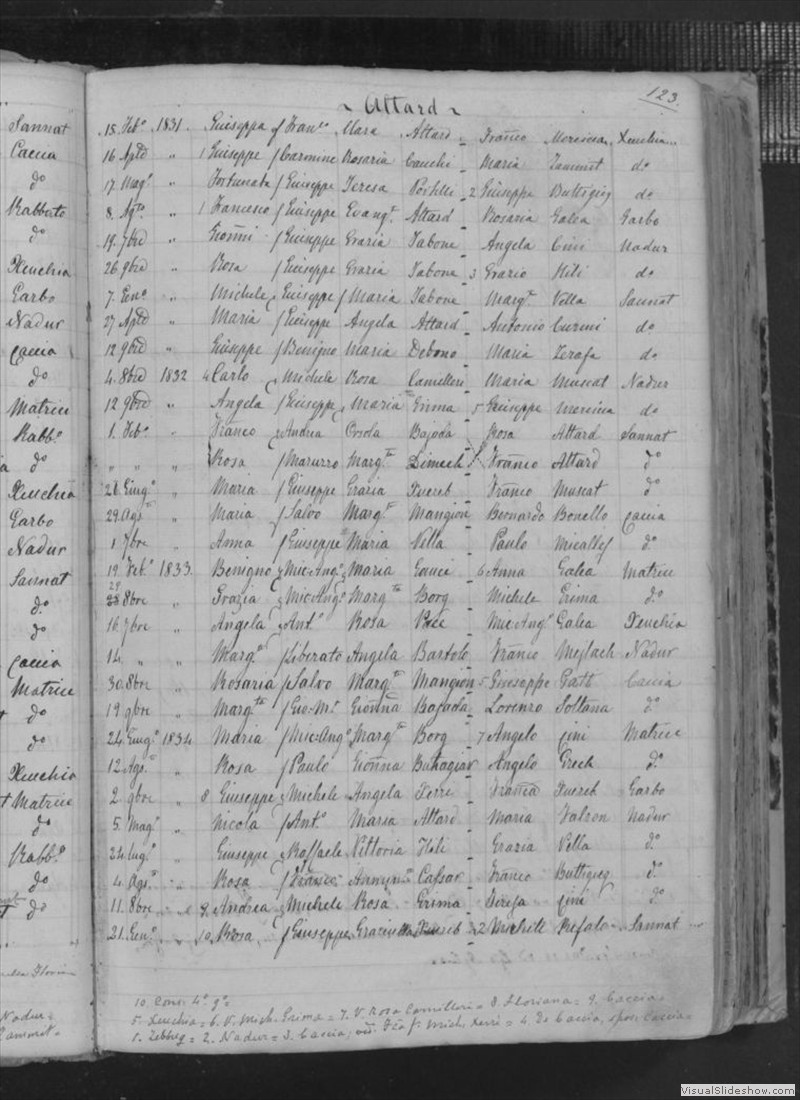 123.
~ Attard ~
Sannat
Caccia
do
Rabbato
do
Xeuchia
Garbo
Nadur
Caccia
do
Matrice
Rabb.o
do
Xeuchia
Garbo
Nadur
Sannat
do
do
Caccia
Matrice
do
do
Xeuchia
Matrice
do
Rabb.o
do
do
15. Feb.o 1831. Giuseppa of Fran.co Mara Attard Franco Xeuchia
16 " 1 Giuseppe / Carmine Rosaria Cauchi Maria do
17. Mag.o " Fortunata / Giuseppe Teresa Portelli 2 Giuseppe Buttigieg do
8. " 1 Francesco / Giuseppe Evang.ta Attard Rosaria Galea Garbo
19. 7bre " / Giuseppe Grazia Tabone Angela Cini Nadur
26 9bre " Rosa / Giuseppe Grazia Tabone 3 Grazio Hili do
7. Gen.o " Michele / Giuseppe / Maria Tabone Marg.ta Vella Sannat
27 " Maria / Giuseppe Angela Attard Antonio Curmi do
12 9bre " Giuseppe / Benigno Maria Debono Maria Zerafa do
4. 8bre 1832 4 Carlo / Michele Rosa Camilleri Maria Muscat Nadur
12 9bre " Angela / Giuseppe Maria Grima 5 Giuseppe Mercieca do
1. Feb.o " Franco / Andrea Orsola Bajada Rosa Attard Sannat
" " " Rosa / Maruzzo Marg.ta Dimech Franco Attard do
28 Giug.o " Maria / Giuseppe Grazia Xuereb Franco Muscat do
29. Ags.to " Maria / Salvo Marg.ta Mangion Bernardo Bonello Caccia
1. 7bre " Anna / Giuseppe Maria Vella Paulo Micallef do
19. Feb.o 1833. Benigno / Mic-Ang.o Maria Gauci 6 Anna Galea Matrice
29
28 8bre " Grazia / Mic-Ang.o Marg.ta Borg Michele Grima do
16. 7bre " Angela / Ant.o Rosa Mic-Ang.o Galea Xeuchia
14. " " Marg.ta / Liberato Angela Bartolo Franco Mejlach Nadur
30. 8bre " Rosaria / Salvo Marg.ta Mangion 5 Giuseppe Gatt Caccia
19 9bre " Marg.ta / Gio-M.a Giovanna Bajada Lorenzo Soltana do
24. Giug.o 1834 Maria / Mic-Ang.o Marg.ta Borg 7 Angelo Cini Matrice
12. Ags.to " Rosa / Paulo Gionna Buttagiar Angelo Grech do
2. 9bre " 8 Giuseppe / Michele Angela Xerri Franca Xuereb Garbo
5. Mag.o " Nicola / Ant.o Maria Attard Maria Nadur
24 Lug.o " Giuseppe / Raffaele Vittoria Hili Grazia Vella do
4. Ags.to " Rosa / Franco Cassar Franco Buttigieg do
11. 8bre " 9. Andrea / Michele Rosa Grima Teresa Cini do
21. Gen.o " 10. Rosa / Giuseppe Xuereb 2 Michele Refalo Sannat
10. Cons: 4.o g.o
5. Xeuchia = 6. V. Mich. Grima = 7. V. Rosa Camilleri = 8. Floriana = 9. Caccia
1. Zebbug = 2. Nadur = 3. Caccia; Mich. Xerri = 4. Caccia, Caccia
VisualSlideshow.com